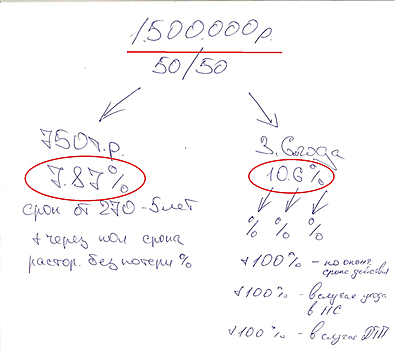 1.500.000р.
50/50
750т.р.
7.87%
срок от 270 - 5лет
+ через пол срока
растор. без потери %
3.6 года
10.6%
% % %
+100% - по оконч. срока действия
+100% - в случае ухода в НС
+100% - в случае ДТП